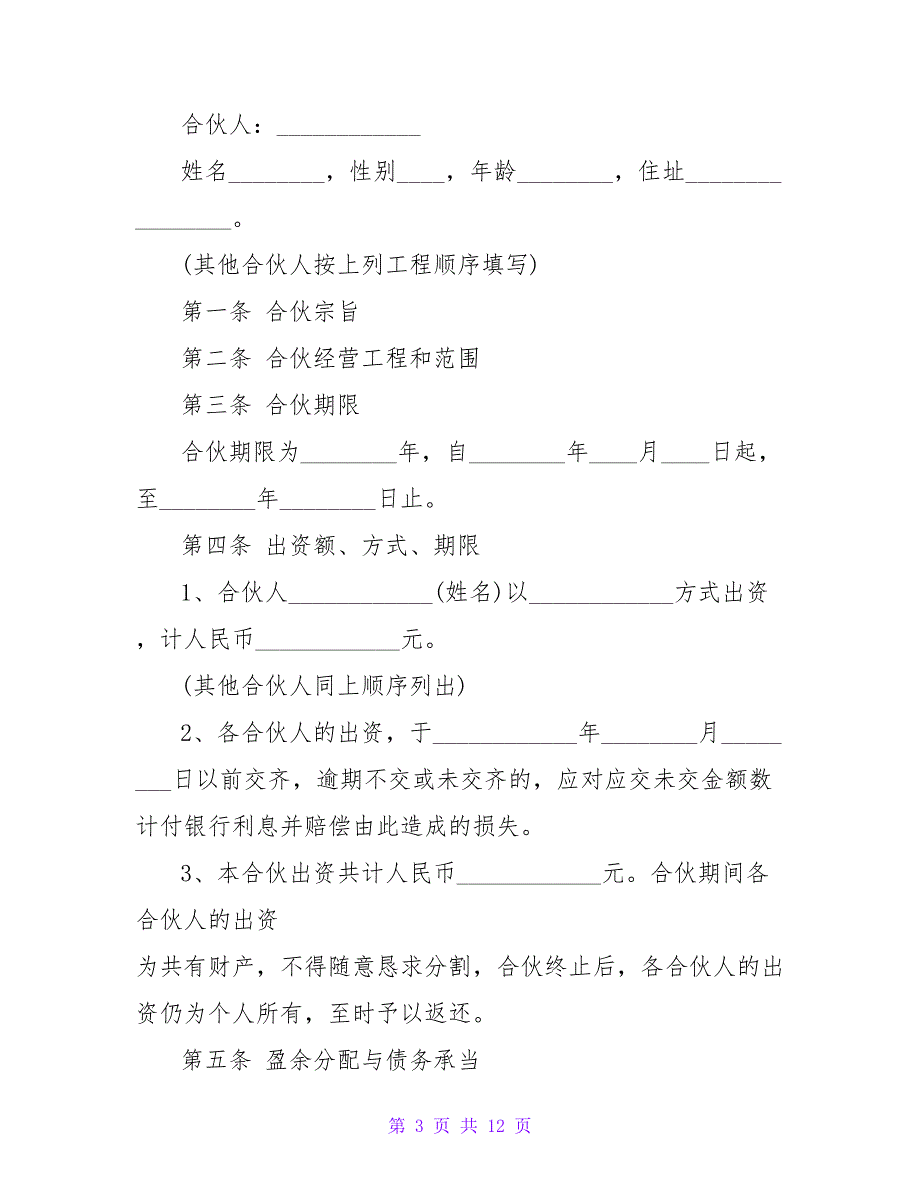 合伙人：____________
姓名________，性别____，年龄________，住址________
________。
(其他合伙人按上列工程顺序填写)
第一条 合伙宗旨
第二条 合伙经营工程和范围
第三条 合伙期限
合伙期限为________年，自________年____月____日起，
至________年________日止。
第四条 出资额、方式、期限
1、合伙人____________(姓名)以____________方式出资
，计人民币____________元。
(其他合伙人同上顺序列出)
2、各合伙人的出资，于____________年________月_____
___日以前交齐，逾期不交或未交齐的，应对应交未交金额数
计付银行利息并赔偿由此造成的损失。
3、本合伙出资共计人民币____________元。合伙期间各
合伙人的出资
为共有财产，不得随意恳求分割，合伙终止后，各合伙人的出
资仍为个人所有，至时予以返还。
第五条 盈余分配与债务承当
第 3 页 共 12 页